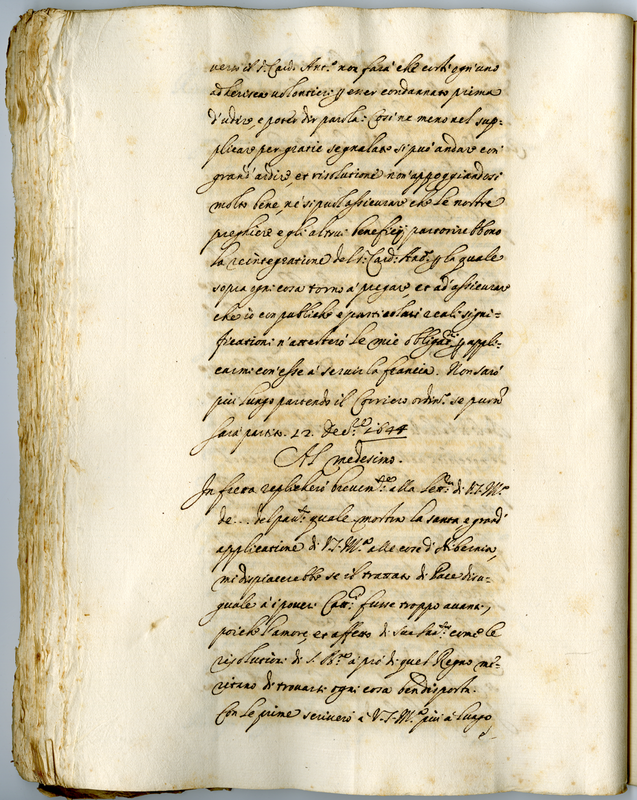 versi il d.º Card. Ant.º non farà che certi ogn'uno
adherisca volontieri p esser condannato prima
d'udire, e poter dir parola: Così ne meno nel sup-
plicare per gratie segnalate si può andare con
grand'ardire, et risolutione non appoggiandosi
molto bene, ne si può assicurare che le nostre
preghiere e gli altrui beneficij partorirebbono
la reintegratione del s.r Card: Ant.º p la quale
sopra ogni cosa torno à pregare, et ad'assicurare
che io con publiche e particolari reali signi-
ficationi n'attesterò le mie obligat.ni p appli-
carmi con esse à servir la francia. Non sarò
più lungo partendo il Corriero ordin.º se pure
sarà partito. 12. Dec.re 1644
Al medesimo.
In fretta replicherò brevem.te alla lett.ra di V.S.Ill.ma
de ... del pass.to quale mostra la santa e grand'
applicatione di V.S.Ill.ma alle cose d'Hibernia,
mi dispiacerebbe se il trattato di Pace disu-
guale à i poveri Catt.ci fusse troppo avanti,
poiche l'amore, et affetto di Sua San.tà come le
risolutioni di S. B.ne à prò di quel Regno me-
ritano di trovarsi ogni cosa ben disposta.
Con le prime scriverò à V.S.Ill.ma più à lungo